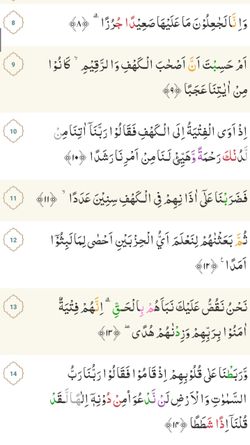 8
وَاِنَّا لَجٰعِلُوْنَ مَا عَلَيْهَا صَعِيْدًا جُرُزًا ؕ ﴿۸﴾
9
اَمْ حَسِبْتَ اَنَّ اَصْحٰبَ الْكَهْفِ وَالرَّقِيْمِ ۙ كَانُوْا
مِنْ اٰيٰتِنَا عَجَبًا ﴿۹﴾
10
اِذْ اَوَى الْفِتْيَةُ اِلَى الْكَهْفِ فَقَالُوْا رَبَّنَاۤ اٰتِنَا مِنْ
لَّدُنْكَ رَحْمَةً وَّهَيِّئْ لَنَا مِنْ اَمْرِنَا رَشَدًا ﴿۱۰﴾
11
فَضَرَبْنَا عَلٰۤى اٰذَانِهِمْ فِى الْكَهْفِ سِنِيْنَ عَدَدًا ۙ ﴿۱۱﴾
12
ثُمَّ بَعَثْنٰهُمْ لِنَعْلَمَ اَىُّ الْحِزْبَيْنِ اَحْصٰى لِمَا لَبِثُوْۤا
اَمَدًا ؑ ﴿۱۲﴾
13
نَحْنُ نَقُصُّ عَلَيْكَ نَبَاَهُمْ بِالْحَـقِّ ؕ اِنَّهُمْ فِتْيَةٌ
اٰمَنُوْا بِرَبِّهِمْ وَزِدْنٰهُمْ هُدًى ۖ ﴿۱۳﴾
14
وَّرَبَطْنَا عَلٰى قُلُوْبِهِمْ اِذْ قَامُوْا فَقَالُوْا رَبُّنَا رَبُّ
السَّمٰوٰتِ وَالْاَرْضِ لَنْ نَّدْعُوَا۫ مِنْ دُوْنِهٖۤ اِلٰهًـا لَّـقَدْ
قُلْنَاۤ اِذًا شَطَطًا ﴿۱۴﴾